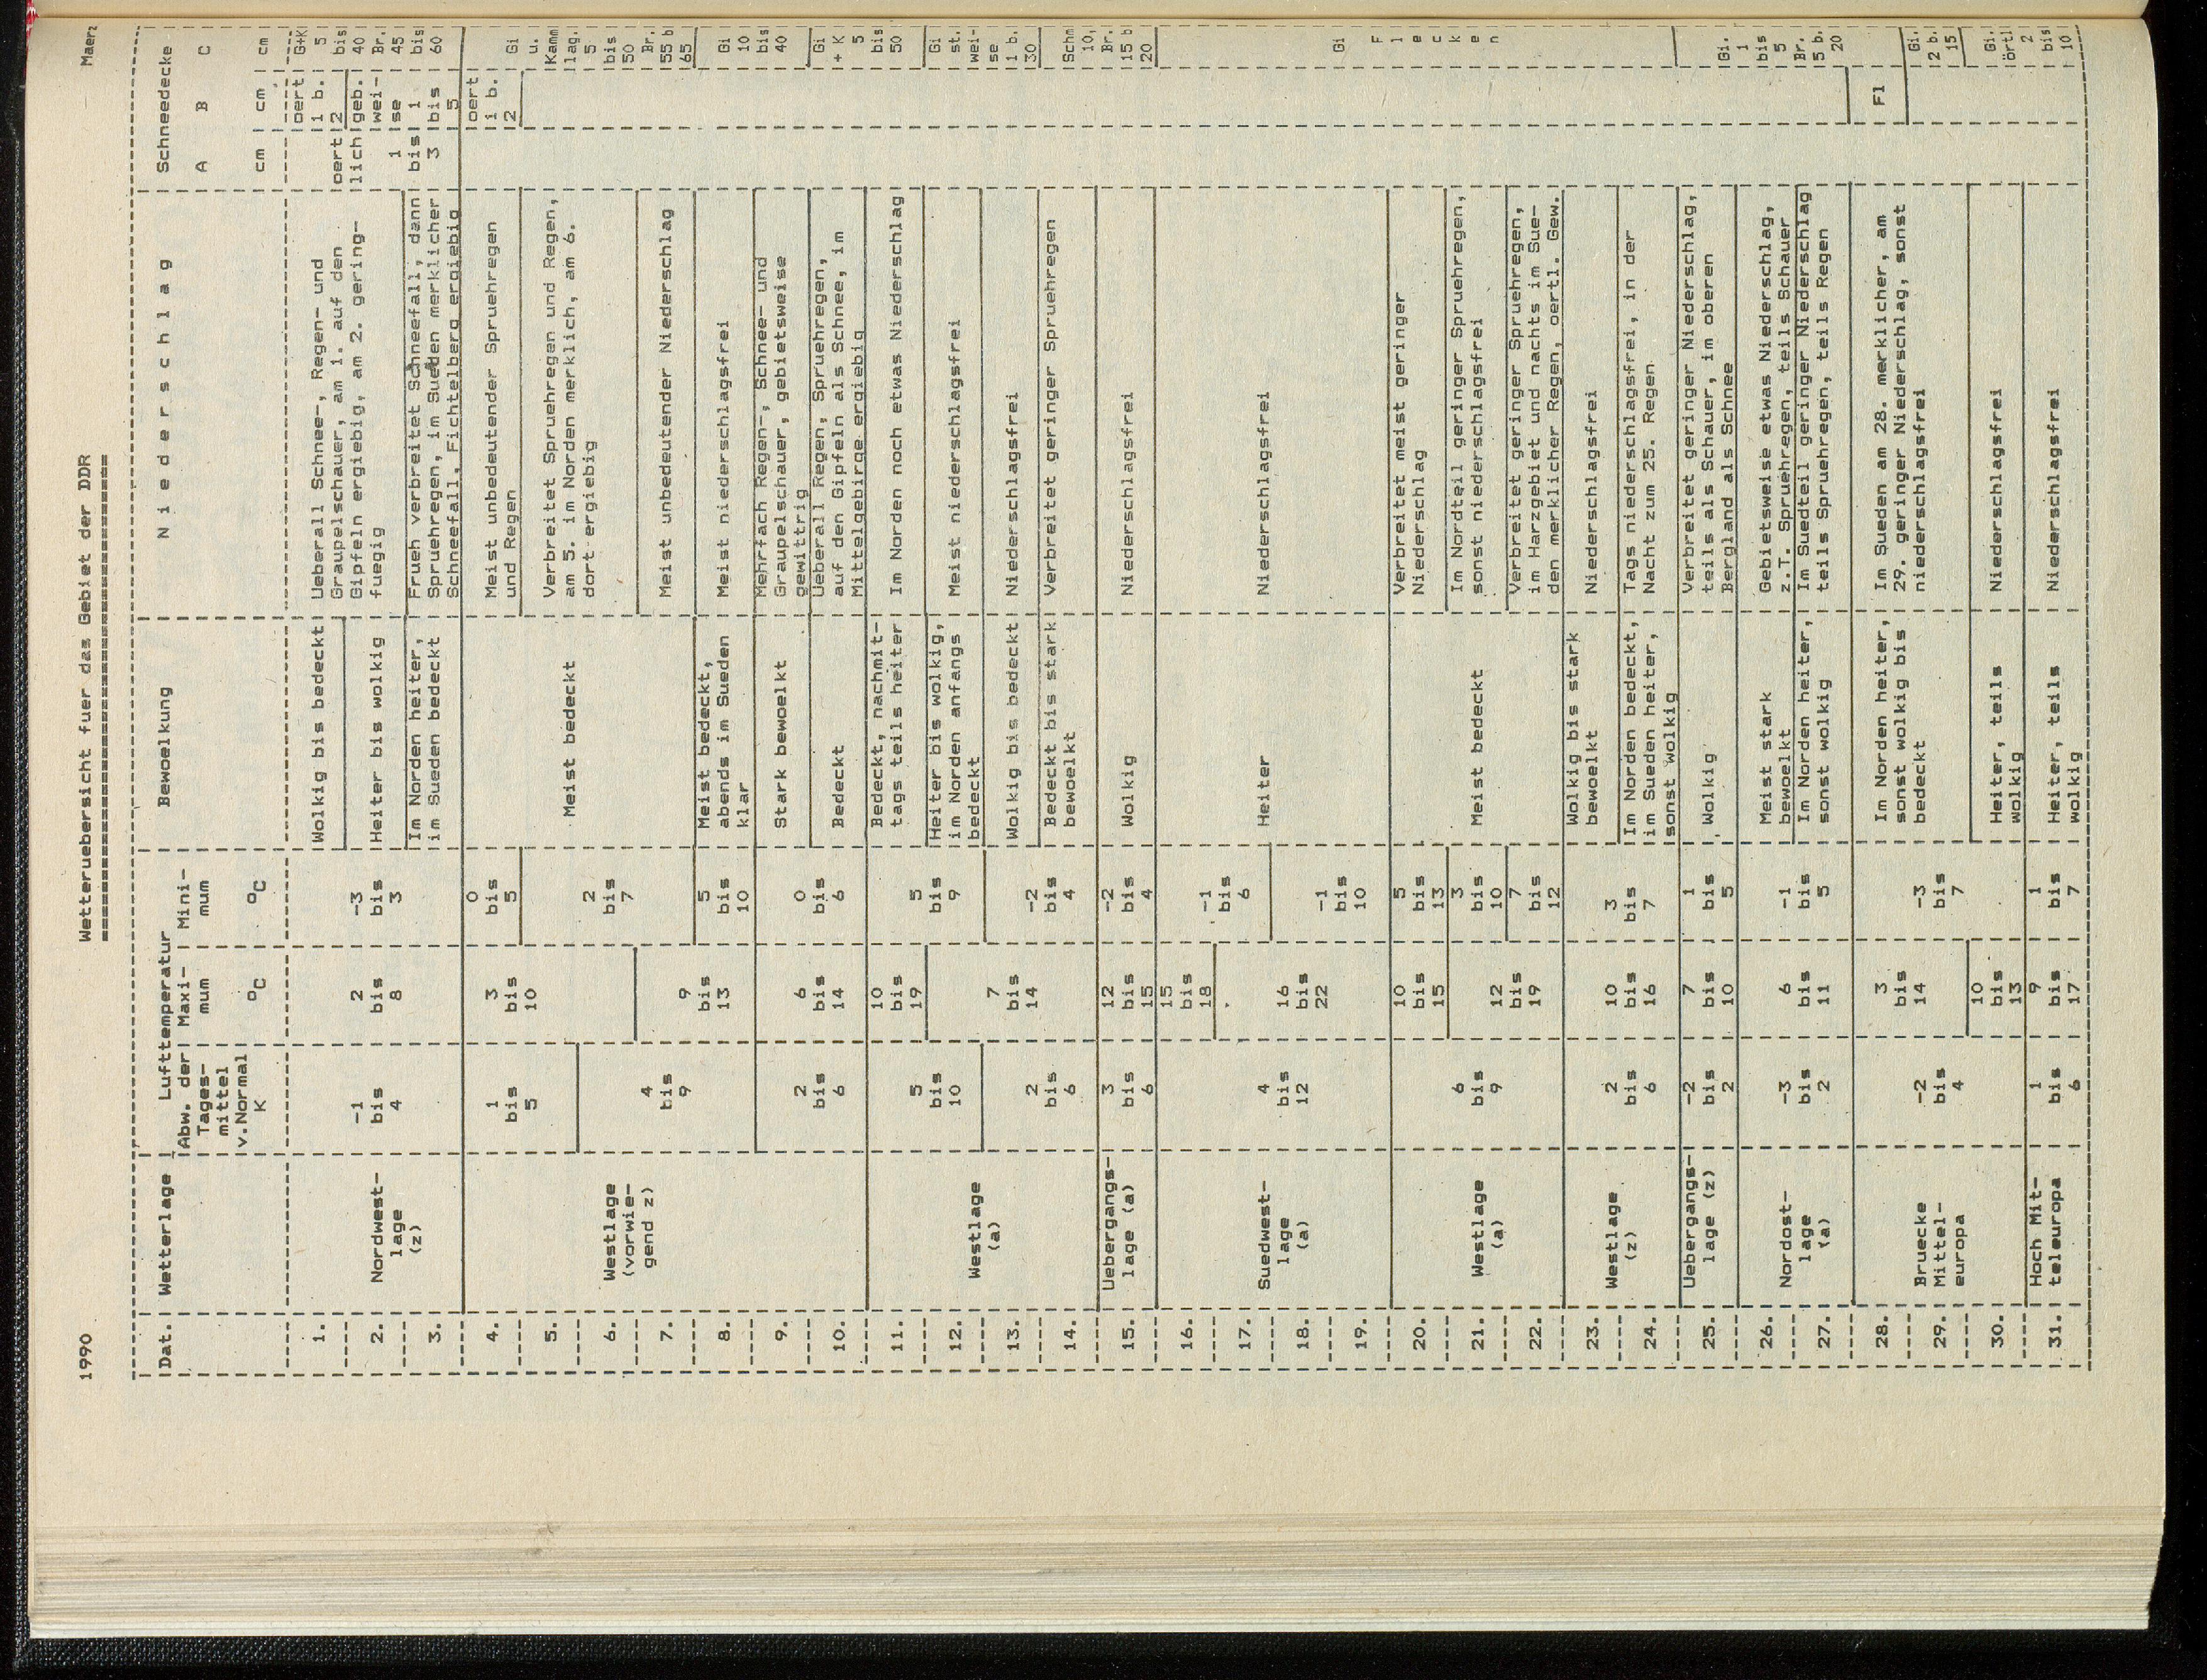 1990 Wetteruebersicht fuer das Gebiet der DDR Maerz
Dat. Wetterlage Lufttemperatur Bewoelkung Niederschlag Schneedecke
Abw. der Tages-mittel v.Normal K Maxi-mum °C Mini-mum °C A cm B cm C cm
1. Wolkig bis bedeckt Ueberall Schnee-, Regen- und
Graupelschauer, am 1. auf den
2. Nordwest-lage (z) -1 bis 4 2 bis 8 -3 bis 3 Heiter bis wolkig Gipfeln ergiebig, am 2. gering-
fuegig
3. Im Norden heiter, Frueh verbreitet Schneefall, dann
im Sueden bedeckt Spruehregen, im Sueden merklicher
Schneefall, Fichtelberg ergiebig
oertlich 1 bis 3
oert 1 b. 2
geb. wei-se 1 bis 5
G+K 5 bis 40
Br. 45 bis 60
4. 1 bis 5 3 bis 10 0 bis 5 Meist unbedeutender Spruehregen
und Regen
oert 1 b. 2
5. Meist bedeckt Verbreitet Spruehregen und Regen,
6. Westlage (vorwie-gend z) 2 bis 7 am 5. im Norden merklich, am 6.
dort ergiebig
Gi u. Kamm lag. 5 bis 50
Br. 55 b 65
7. 4 bis 9 9 bis 13 Meist unbedeutender Niederschlag
8. 5 bis 10 Meist bedeckt, Meist niederschlagsfrei
abends im Sueden
klar
Gi 10 bis 40
9. 2 bis 6 6 bis 14 0 bis 6 Stark bewoelkt Mehrfach Regen-, Schnee- und
Graupelschauer, gebietsweise
gewittrig
10. Bedeckt Ueberall Regen, Spruehregen,
auf den Gipfeln als Schnee, im
Mittelgebirge ergiebig
Gi + K 5 bis 50
11. 5 bis 10 10 bis 19 5 bis 9 Bedeckt, nachmit- Im Norden noch etwas Niederschlag
tags teils heiter
12. Westlage (a) 7 bis 14 Heiter bis wolkig, Meist niederschlagsfrei
im Norden anfangs
bedeckt
Gi st. wei-se 1 b. 30
13. 2 bis 6 -2 bis 4 Wolkig bis bedeckt Niederschlagsfrei
14. Bedeckt bis stark Verbreitet geringer Spruehregen
bewoelkt
Schn 10,
Br. 15 b 20
15. Uebergangs-lage (a) 3 bis 6 12 bis 15 -2 bis 4 Wolkig Niederschlagsfrei
16. 15 bis 18
17. Suedwest-lage (a) 4 bis 12 -1 bis 6 Heiter Niederschlagsfrei
18. 16 bis 22 -1 bis 10
19.
Gi Flecken
20. 10 bis 15 5 bis 13 Verbreitet meist geringer
Niederschlag
21. Westlage (a) 6 bis 9 12 bis 19 3 bis 10 Meist bedeckt Im Nordteil geringer Spruehregen,
sonst niederschlagsfrei
22. 7 bis 12 Verbreitet geringer Spruehregen,
im Harzgebiet und nachts im Sue-
den merklicher Regen, oertl. Gew.
23. Westlage (z) 2 bis 6 10 bis 16 3 bis 7 Wolkig bis stark Niederschlagsfrei
bewoelkt
24. Im Norden bedeckt, Tags niederschlagsfrei, in der
im Sueden heiter, Nacht zum 25. Regen
sonst wolkig
25. Uebergangs-lage (z) -2 bis 2 7 bis 10 1 bis 5 Wolkig Verbreitet geringer Niederschlag,
teils als Schauer, im oberen
Bergland als Schnee
Gi. 1 bis 5
Br. 5 b. 20
26. Nordost-lage (a) -3 bis 2 6 bis 11 -1 bis 5 Meist stark Gebietsweise etwas Niederschlag,
bewoelkt z.T. Spruehregen, teils Schauer
27. Im Norden heiter, Im Suedteil geringer Niederschlag
sonst wolkig teils Spruehregen, teils Regen
28. Fl
Im Norden heiter, Im Sueden am 28. merklicher, am
29. Bruecke Mittel-europa -2 bis 4 3 bis 14 -3 bis 7 sonst wolkig bis 29. geringer Niederschlag, sonst
bedeckt niederschlagsfrei
Gi. 12 b. 15
30. 10 bis 13 Heiter, teils Niederschlagsfrei
wolkig
Gi. örtl 2 bis 10
31. Hoch Mit-teleuropa 1 bis 6 9 bis 17 1 bis 7 Heiter, teils Niederschlagsfrei
wolkig